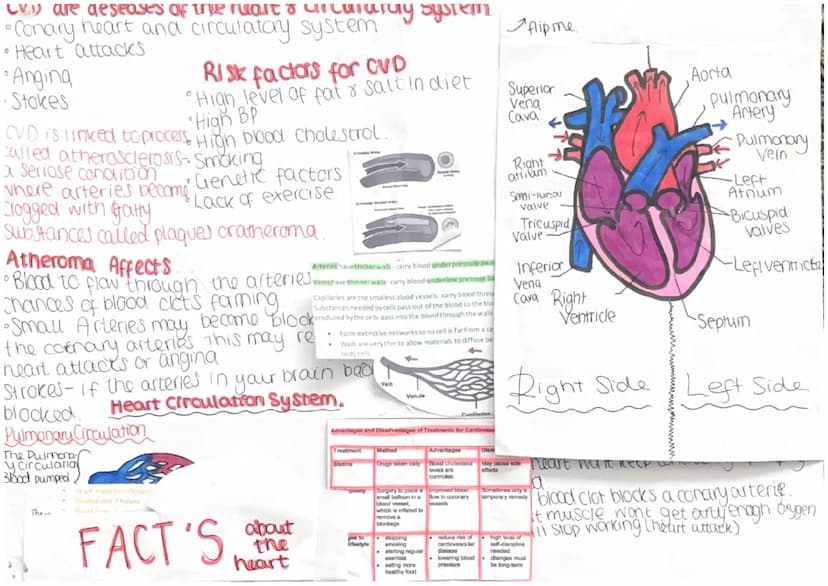 CVD are deseases of the heart & circulatory system
Conary heart and circulatory system
Heart attacks
Anging
Stokes
Risk factors for CVD
High level of fat & salt in diet
High BP
High blood cholestrol.
Smoking
Genetic factors
Lack of exercise
CVD is linked to process
called atherasclerosis-
a seriose condition
where arteries become
clogged with fatty
substances called plaques or atheroma.
Atheroma Affects
Blood to flow through the arteries
chances of blood clots forming.
Small Arteries may become block
the coronary arteries This may re
heart attacks or angina
Strokes- if the arteries in your brain bec
blocked.
Heart Circulation System.
Pulmonary Circulation
The Pulmona-
ry circulation
Blood pumped
FACT'S about
the
heart
Arteries have thicker walls - carry blood under pressure
Veins have thinner walls - carry blood under low pressure
Capillaries are the smallest blood vessels - carry blood
Substances needed by cells pass out of the blood to the
produced by the cells pass into the blood through the walls
Form extinctive networks so no cell is far from a
Walls are very thin to allow materials to diffuse
body cells
Vein
Venule
Capillaries
Advantages and Disadvantages of Treatments for
Treatment Method Advantages
Statins Drugs taken daily Blood cholesterol
levels are
controlled
May cause side
effects
Surgery to place a
small balloon in a
blood vessel,
which is inflated to
remove a
blockage
Improved blood
flow in coronary
vessels
Sometimes only a
temporary remedy
lifestyle
stopping
smoking
starting regular
exercise
eating more
healthy food
reduce risk of
cardiovascular
disease
lowering blood
pressure
high level of
self-discipline
needed
changes must
be long-term
flip me
Superior
Vena
Cava.
Right
atrium
Semi-lunar
valve
Tricuspid
Valve
Inferior
Vena
Cava
Right
Ventricle
Aorta
Pulmonary
Artery
Pulmonary
Vein
Left
Atrium
Bicuspid
valves
Left ventricle
Septum
Right Side
Left Side
blood clot blocks a conary arterie.
muscle wont get enough oxygen
stop working (heart attack)